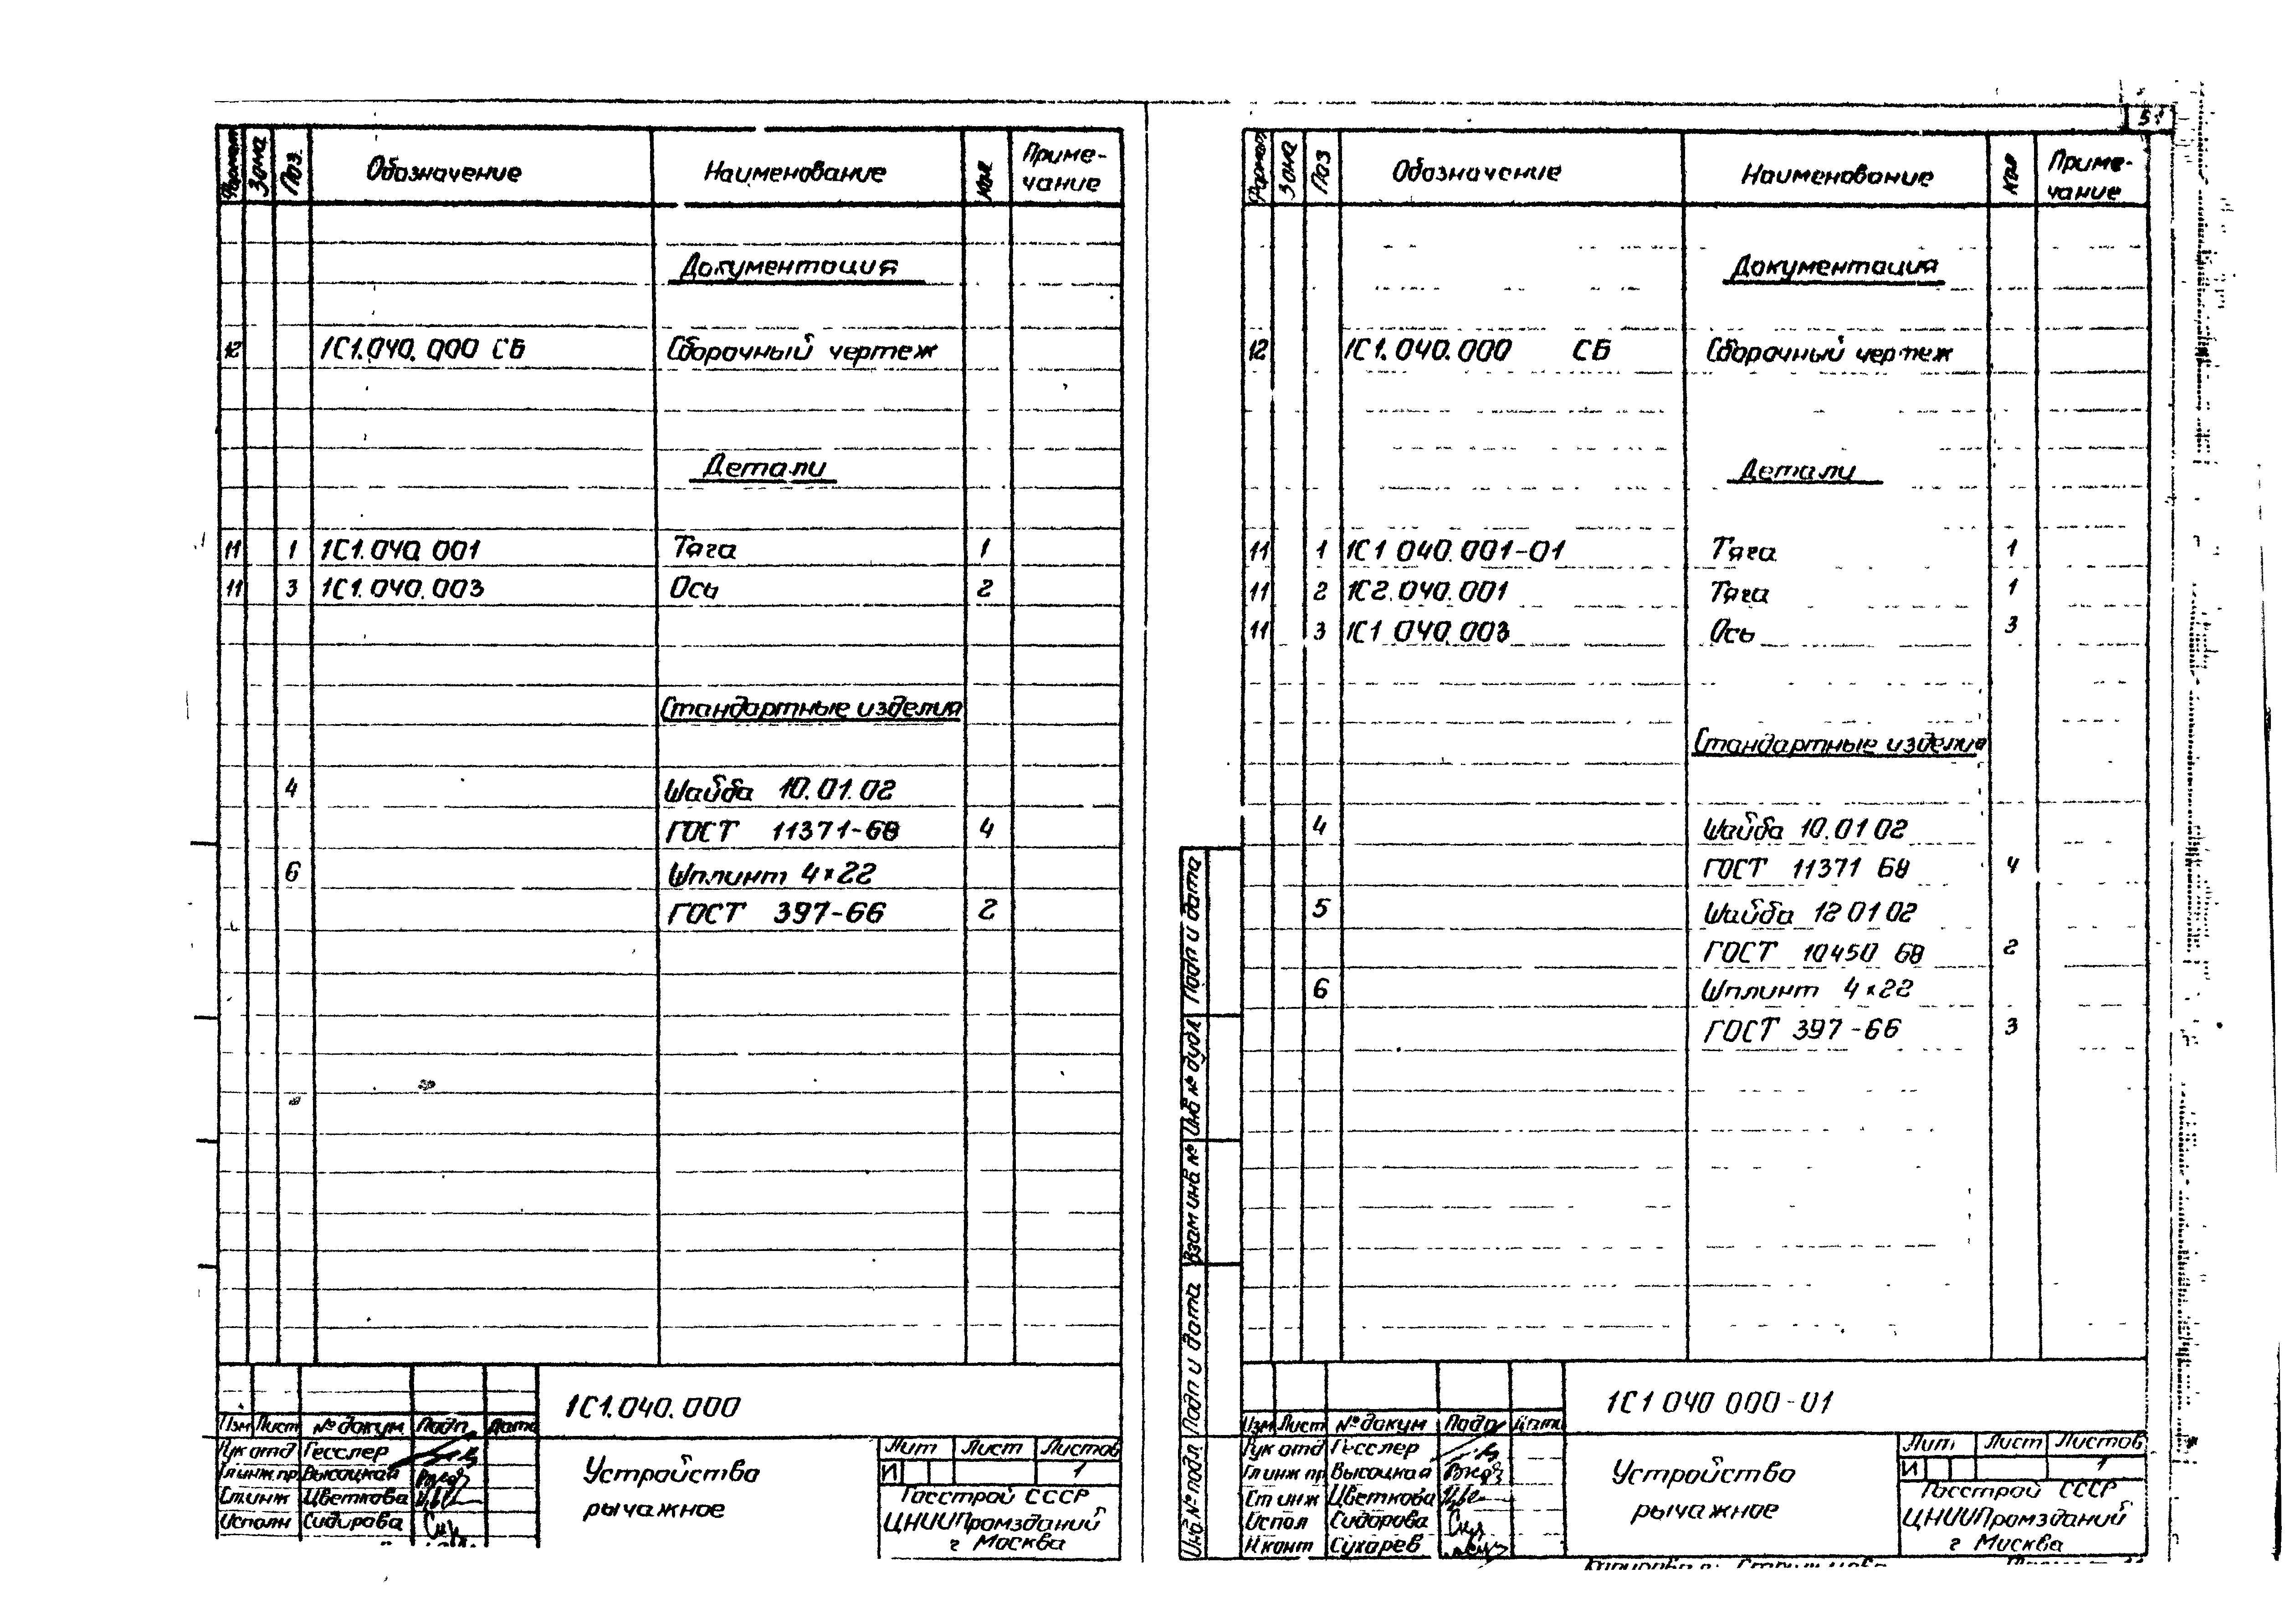 Формат Зона Поз. Обозначение Наименование Кол Приме-
чание
Документация
12 1С1.040.000 СБ Сборочный чертеж
Детали
11 1 1С1.040.001 Тяга 1
11 3 1С1.040.003 Ось 2
Стандартные изделия
4 Шайба 10.01.02
ГОСТ 11371-68 4
6 Шплинт 4×22
ГОСТ 397-66 2
1С1.040.000
Изм Лист № докум Подп Дата
Рук отд Гесслер
Гл инж пр Высоцкая
Ст инж Цветкова
Исполн Сидорова
Устройство
рычажное
Лит Лист Листов
И 1
Госстрой СССР
ЦНИИПромзданий
г Москва
51
Формат Зона Поз Обозначение Наименование Кол Приме-
чание
Документация
12 1С1.040.000 СБ Сборочный чертеж
Детали
11 1 1С1 040.001-01 Тяга 1
11 2 1С2.040.001 Тяга 1
11 3 1С1 040.003 Ось 3
Стандартные изделия
4 Шайба 10.01 02
ГОСТ 11371 68 4
5 Шайба 12 01 02
ГОСТ 10450 68 2
6 Шплинт 4×22
ГОСТ 397-66 3
Подп и дата
Инв № дубл
Взам инв №
Подп и дата
Инв № подл
1С1 040 000-01
Изм Лист № докум Подп Дата
Рук отд Гесслер
Гл инж пр Высоцкая
Ст инж Цветкова
Испол Сидорова
Н конт Сухарев
Устройство
рычажное
Лит Лист Листов
И 1
Госстрой СССР
ЦНИИПромзданий
г Москва